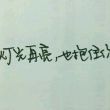 灯光再亮,也抱住你